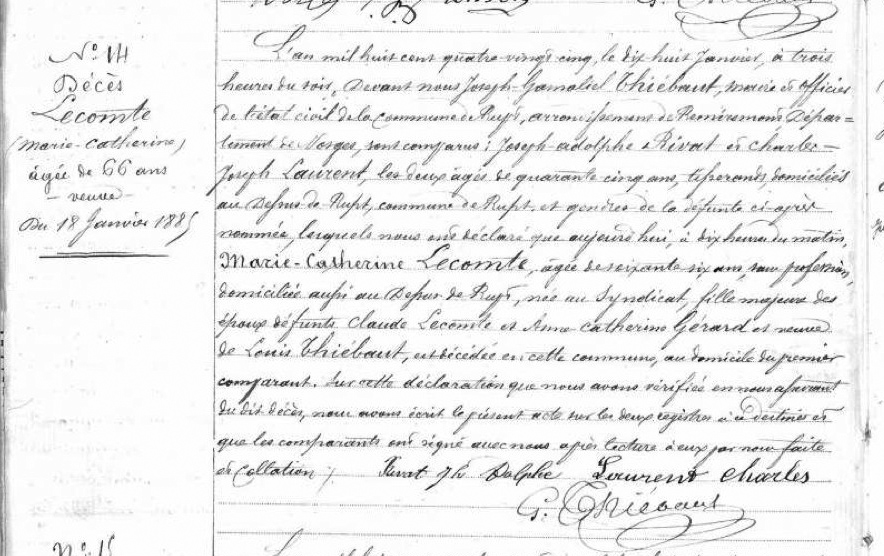 G. Thiébaut
N° 14
Décès
Lecomte
(Marie-Catherine)
âgée de 66 ans
- veuve -
Du 18 Janvier 1885
L'an mil huit cent quatre-vingt cinq, le dix huit Janvier, à trois
heures du soir, Devant nous Joseph-Gamaliel Thiébaut, maire et officier
de l'état civil de la Commune de Rupt, arrondissement de Remiremont Dépar=
tement des Vosges, sont comparus : Joseph-adolphe Rivat et Charles-
Joseph Laurent, les deux âgés de quarante cinq ans, tisserands, domiciliés
au Dessus de Rupt, commune de Rupt, et gendres de la défunte ci-après
nommée, lesquels nous ont déclaré que aujourd'hui, à dix heures du matin,
Marie-Catherine Lecomte, âgée de soixante six ans, sans profession,
domiciliée aussi au Dessus de Rupt, née au Syndicat, fille majeure des
époux défunts Claude Lecomte et Anne Catherine Gérard et veuve
de Louis Thiébaut, est décédée en cette commune, au domicile du premier
comparant. Sur cette déclaration que nous avons vérifiée en nous assurant
du dit décès, nous avons écrit le présent acte sur les deux registres à ce destinés et
que les comparants ont signé avec nous après lecture à eux par nous faite
et Collation ./.
Rivat Jh Dolphe Laurent Charles
G. Thiébaut
N° 15